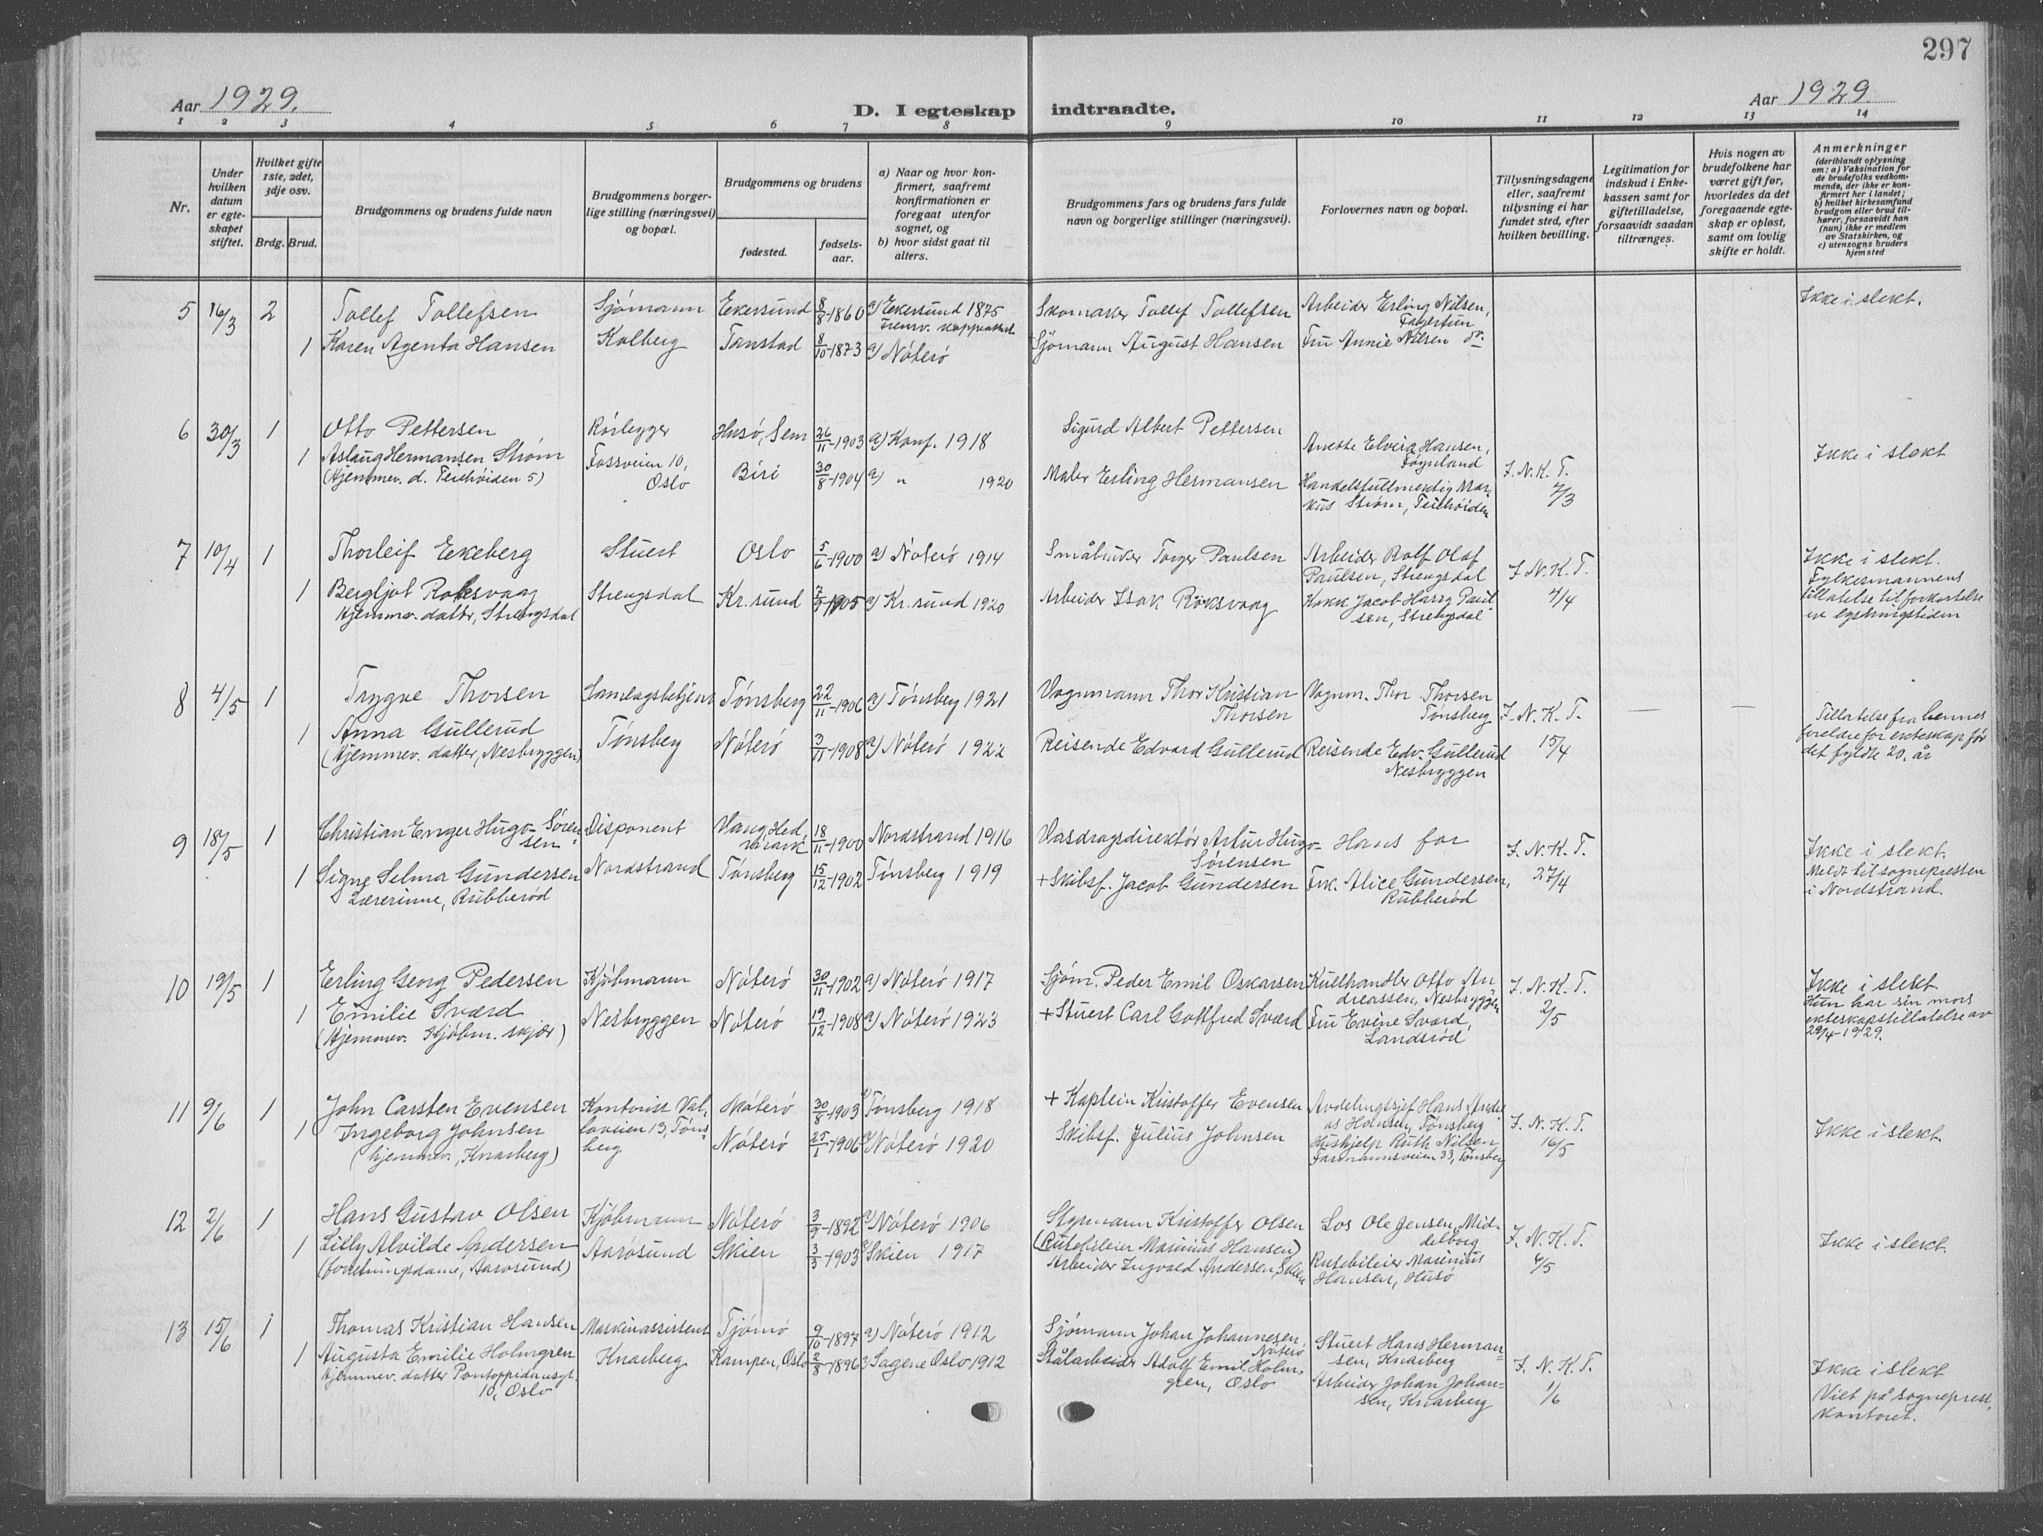 297
Aar 1929.
D. I egteskap indtraadte.
Aar 1929.
1 2 3 4 5 6 7 8 9 10 11 12 13 14
Nr.
Under hvilken datum er egteskapet stiftet.
Hvilket gifte 1ste, 2det, 3dje osv.
Brdg. Brud.
Brudgommens og brudens fulde navn
Brudgommens borgerlige stilling (næringsvei) og bopæl.
Brudgommens og brudens
fødested.
fødselsaar.
a) Naar og hvor konfirmert, saafremt konfirmationen er foregaat utenfor sognet, og
b) hvor sidst gaat til alters.
Brudgommens fars og brudens fars fulde navn og borgerlige stillinger (næringsvei).
Forlovernes navn og bopæl.
Tillysningsdagene eller, saafremt tillysning ei har fundet sted, efter hvilken bevilling.
Legitimation for indskud i Enkekassen samt for giftetilladelse, forsaavidt saadan tiltrænges.
Hvis nogen av brudefolkene har været gift før, hvorledes da det foregaaende egteskap er opløst, samt om lovlig skifte er holdt.
Anmerkninger
(deriblandt oplysning om: a) Vaksination for de brudefolks vedkommende, der ikke er konfirmert her i landet; b) hvilket kirkesamfund brudgom eller brud tilhører, forsaavidt han (hun) ikke er medlem av Statskirken, og c) utensogns bruders hjemsted
5 16/3 2 Tollef Tollefsen Sjømann Ekersund 8/8-1860 a) Ekersund 1875 Skomaker Tollef Tollefsen Arbeider Erling Nilsen, Ikke i slekt.
Fagertun
1 Karen Agenta Hansen Kolberg Tanstad 8/10-1873 a) Nøterø Sjømann August Hansen Fru Annie Nilsen do.
6 30/3 1 Otto Pettersen Rørlegger Husø, Sem 26/11-1903 a) Konf. 1918 Sigurd Albert Pettersen Anette Elvira Hansen,
Føynland
1 Aslaug Hermansen Strøm Fossveien 10, Oslo Biri 30/8-1904 a) " 1920 Maler Erling Hermansen Handelsfullmektig Markus Strøm, Teiehøiden F. N. K. T. 7/3 Ikke i slekt
(Hjemmev. d. Teiehøiden 5)
7 10/4 1 Thorleif Ekeberg Stuert Oslo 5/6-1900 a) Nøterø 1914 Småbruker Torger Paulsen Arbeider Rolf Olaf Paulsen, Strengsdal Ikke i slekt.
1 Bergljot Røksvaag Strengsdal Kr.sund 7/9-1905 a) Kr.sund 1920 Arbeider Isak Røksvaag Kokk Jacob Harry Paulsen, Strengsdal F. N. K. T. 7/4 Fylkesmannens tillatelse til forkortelse av lysningstiden
Hjemmev. datter, Strengsdal
8 4/5 1 Trygve Thorsen Samlagsbetjent Tønsberg 22/11-1906 a) Tønsberg 1921 Vognmann Thor Kristian Thorsen Vognm. Thor Thorsen Tønsberg F. N. K. T. — —
1 Anna Gullerud Tønsberg Nøterø 3/11-1908 a) Nøterø 1922 Reisende Edvard Gullerud Reisende Edv. Gullerud Nesbryggen 15/4 Tillatelse fra hennes foreldre for ekteskap før det fyldte 20. år
(Hjemmev. datter, Nesbryggen)
9 18/5 1 Christian Enger Hugo-Sørensen Disponent Vang Hedmark 18/11-1900 Nordstrand 1916 Vasdragsdirektør Artur Hugo-Sørensen Hans far F. N. K. T. Ikke i slekt.
1 Signe Selma Gundersen Nordstrand Tønsberg 15/12-1902 Tønsberg 1919 + Skibsf. Jacob Gundersen Frk. Alice Gundersen, Rubberød 27/4 Meldt til sognepresten i Nordstrand.
Lærerinne, Rubberød
10 19/5 1 Erling Geng Pedersen Kjøbmann Nøterø 30/11-1902 a) Nøterø 1917 Sjøm. Peder Emil Oskarsen Kullhandler Otto Andreassen, Nesbryggen F. N. K. T. Ikke i slekt
1 Emilie Sværd Nesbryggen Nøterø 19/12-1908 a) Nøterø 1923 + Stuert Carl Gottfred Sværd Fru Evine Sværd, Landsrød 2/5 Hun har sin mors ekteskapstillatelse av 29/4-1929.
(Hjemmev. Kjøbm. skjær)
11 9/6 1 John Carsten Evensen Kontorist Valløveien 13, Tønsberg Nøterø 30/8-1903 a) Tønsberg 1918 + Kaptein Kristoffer Evensen Avdelingssjef Hans Andreas Hansen, Tønsberg F. N. K. T.
1 Ingeborg Johnsen Nøterø 25/1-1906 a) Nøterø 1920 Skibsf. Julius Johnsen Hushjelp Ruth Nilsen, Farmannsveien 33, Tønsberg 16/5 Ikke i slekt.
(hjemmev., Knarberg)
12 2/6 1 Hans Gustav Olsen Kjøbmann Nøterø 3/9-1892 a) Nøterø 1906 Styrmann Kristoffer Olsen Los Ole Jensen, Middelborg F. N. K. T.
1 Lilly Alvilde Andersen Aarøsund Skien 3/3-1903 a) Skien 1917 (Rutebileier Marinius Hansen) Rutebileier Marinius Hansen, Husø 6/5 Ikke i slekt.
(forretningsdame, Aarøsund) Arbeider Ingvald Andersen, Skien
13 15/6 1 Thomas Kristian Hansen Maskinassistent Tjømø 9/10-1897 a) Nøterø 1912 Sjømann Johan Johannesen, Nøterø Stuert Hans Hermansen, Knarberg
1 Augusta Emilie Holmgren Knarberg Kampen, Oslo 2/8-1896 a) Sagene Oslo 1912 Stålarbeider Adolf Emil Holmgren, Oslo Arbeider Johan Johansen, Knarberg F. N. K. T. 1/6 Ikke i slekt
Hjemmev. datter Pontoppidansgt. 10, Oslo Viet på sogneprestkontoret.